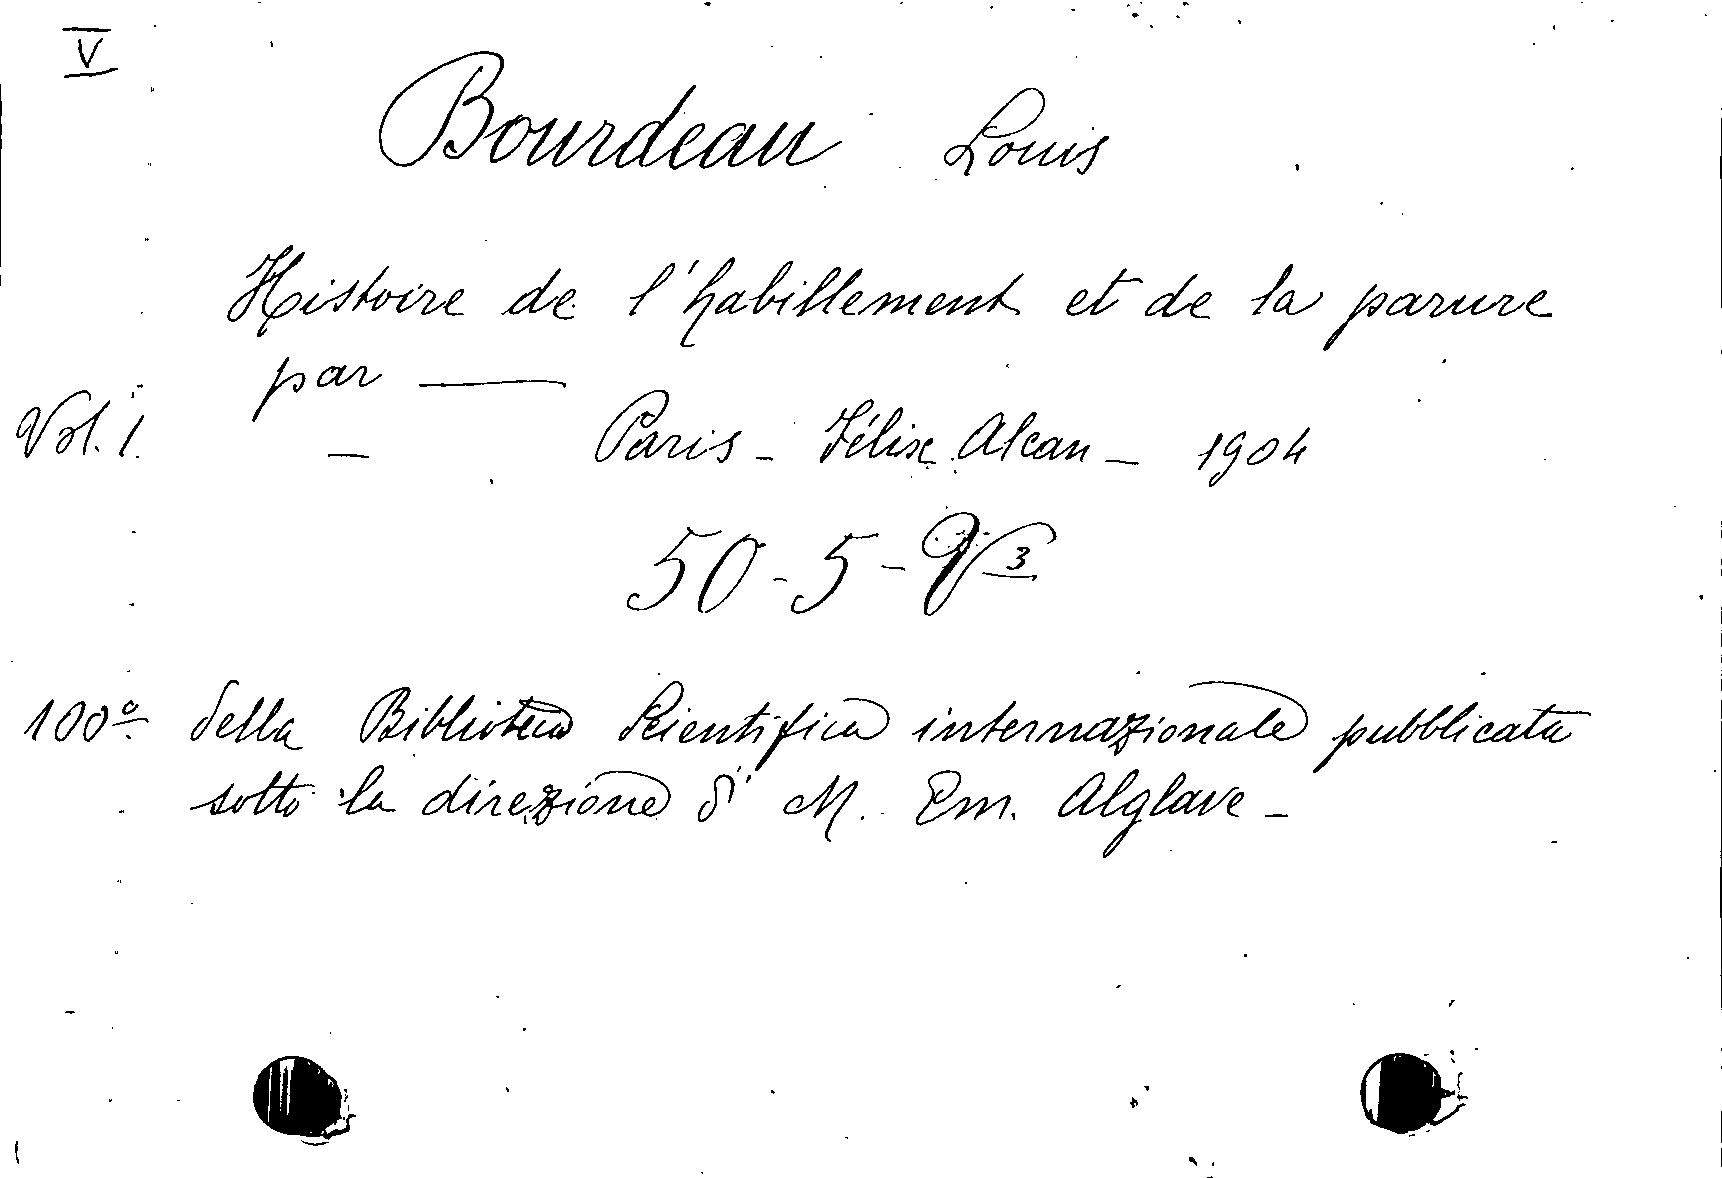 V
Bourdeau Louis
Histoire de l'habillement et de la parure
par ——
Vol. 1. — Paris - Félix Alcan - 1904
50-5-V 3
100º della Biblioteca Scientifica internazionale pubblicata
sotto la direzione di M. Em. Alglave -